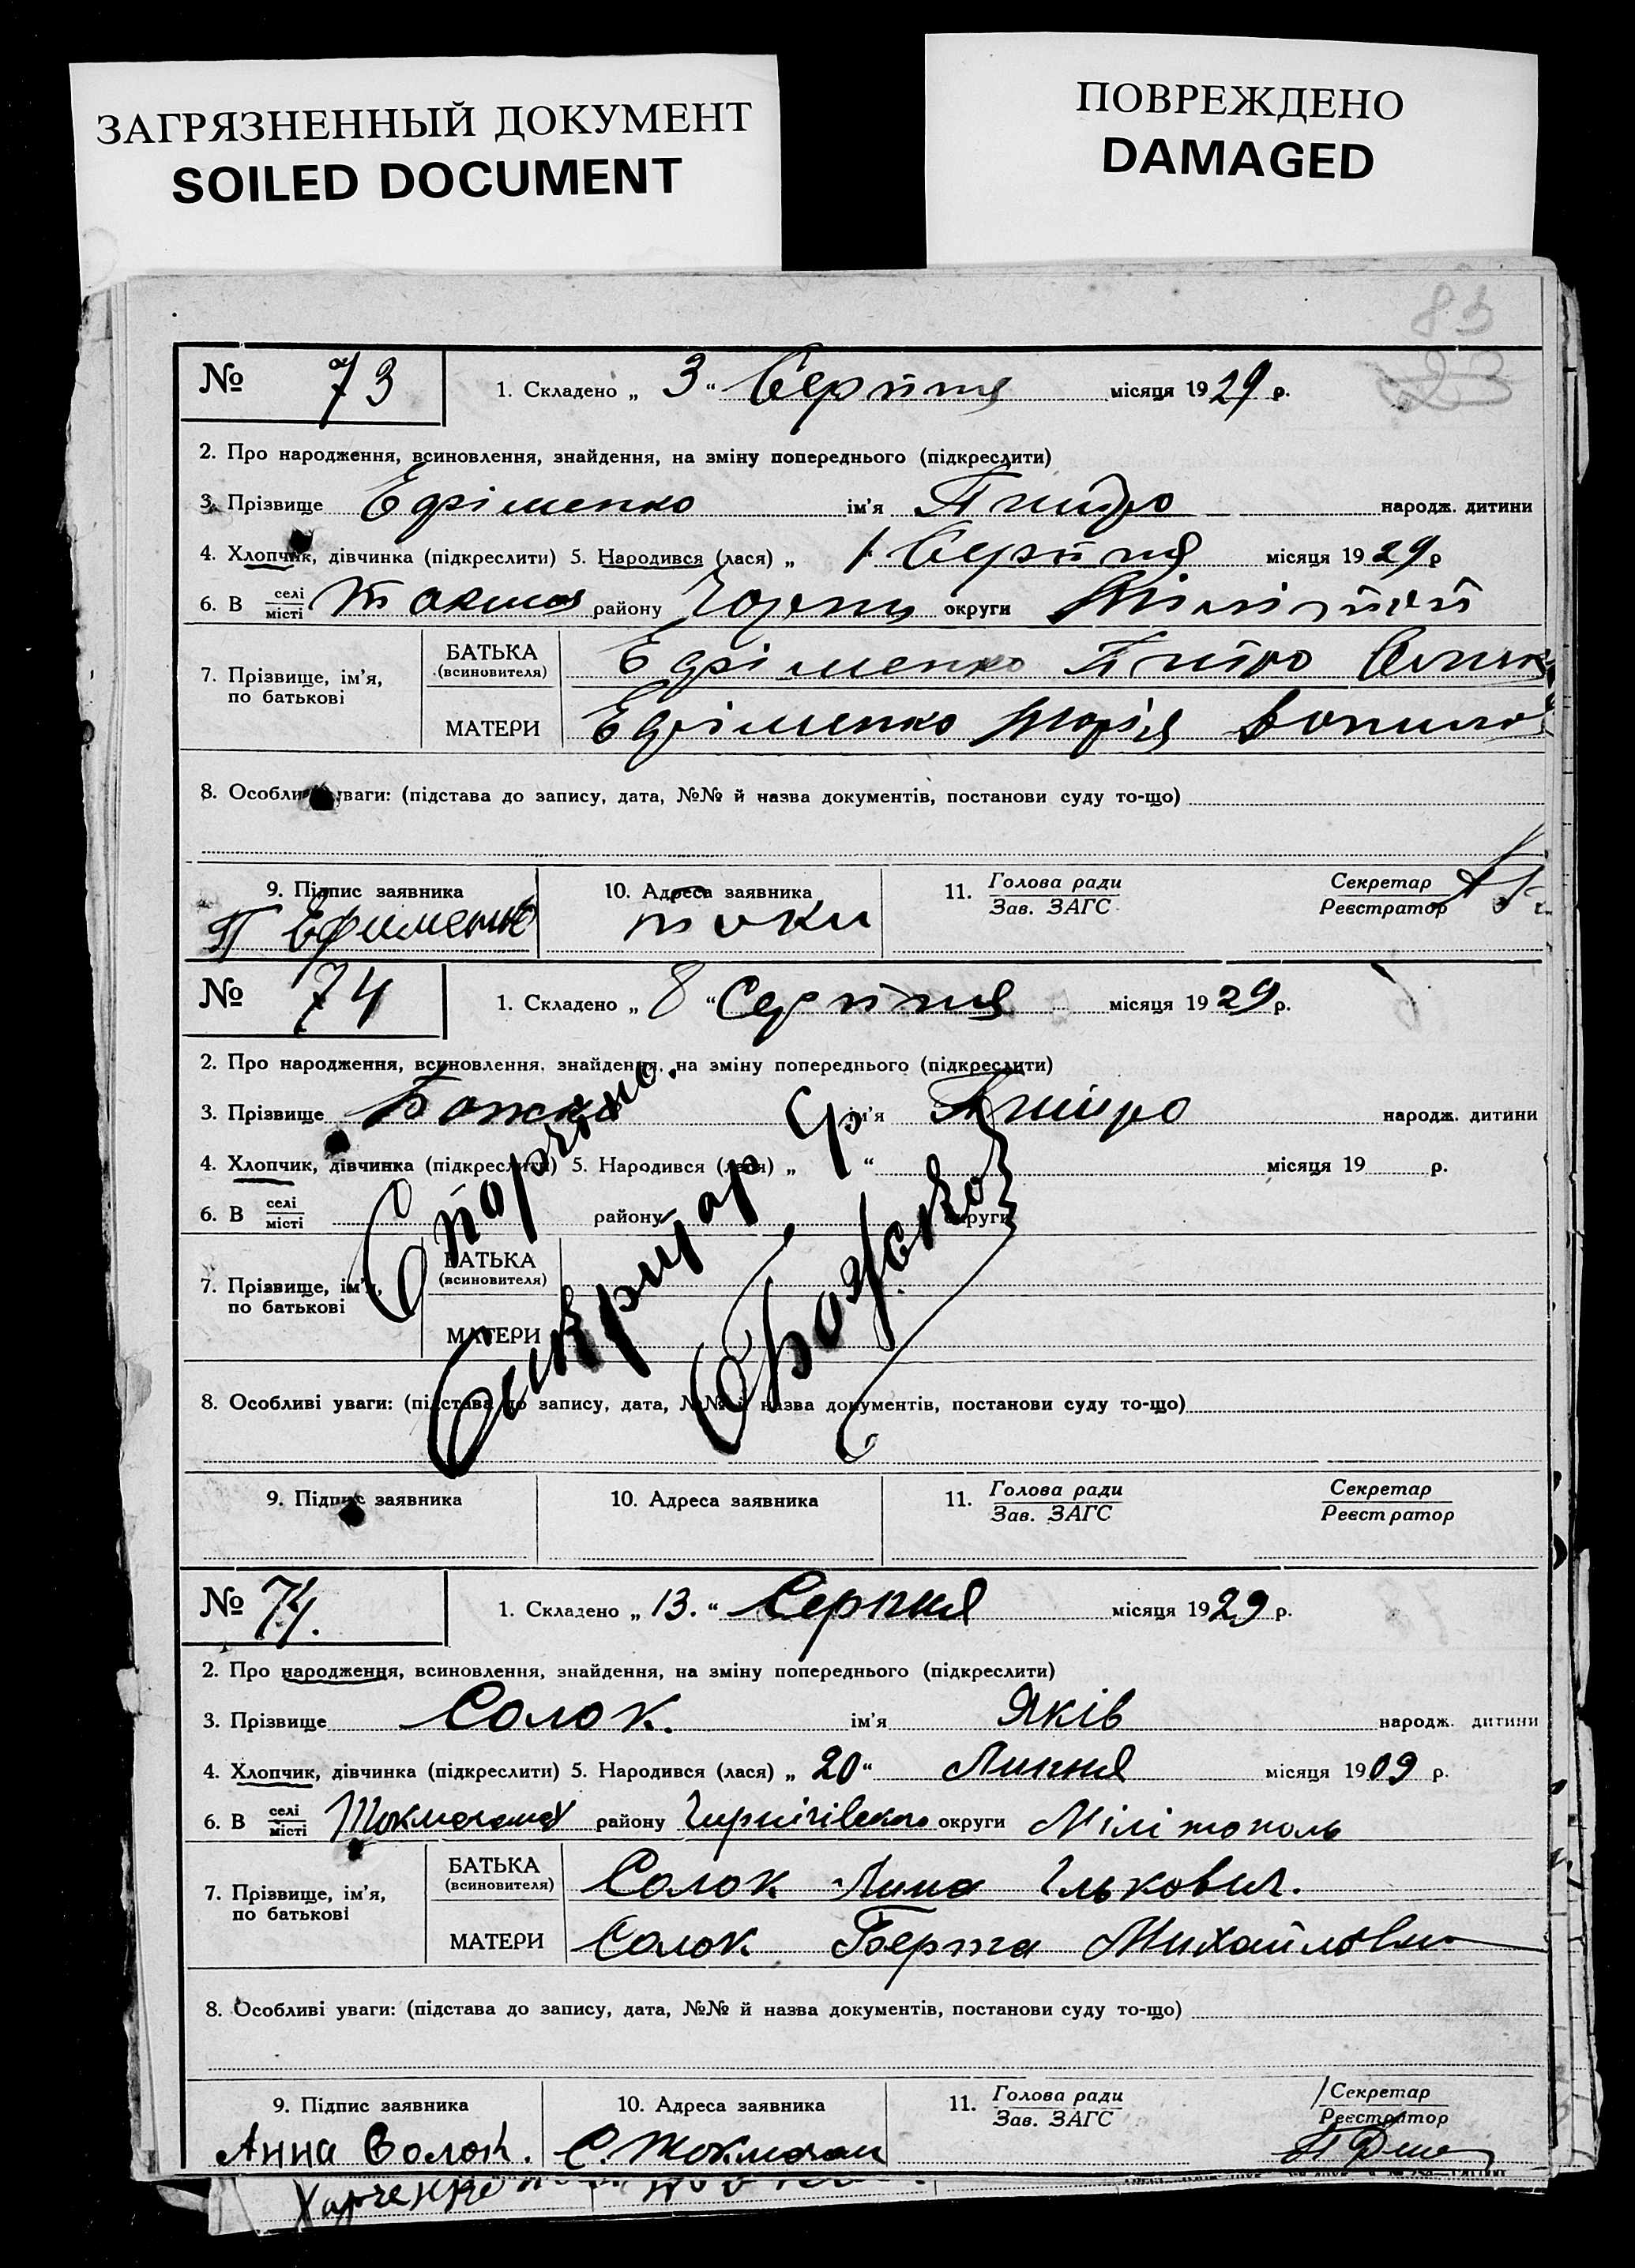 ЗАГРЯЗНЕННЫЙ ДОКУМЕНТ
SOILED DOCUMENT
ПОВРЕЖДЕНО
DAMAGED
83
23
№ 73
1. Складено „ 3 “ Серпня місяця 1929 р.
2. Про народження, всиновлення, знайдення, на зміну попереднього (підкреслити)
3. Прізвище Ефіменко ім'я Питро народж. дитини
4. Хлопчик, дівчинка (підкреслити) 5. Народився (лася) „ 1 “ Серпня місяця 1929 р
6. В селі місті району округи
7. Прізвище, ім'я, по батькові
БАТЬКА (всиновителя) Ефіменко Питро
МАТЕРИ Ефіменко Марія
8. Особливі уваги: (підстава до запису, дата, №№ й назва документів, постанови суду то-що)
9. Підпис заявника
10. Адреса заявника
11. Голова ради Зав. ЗАГС
Секретар Реєстратор
П Ефименко
№ 74
1. Складено „ 8 “ Серпня місяця 1929 р.
2. Про народження, всиновлення, знайдення, на зміну попереднього (підкреслити)
3. Прізвище Божко ім'я Питро народж. дитини
4. Хлопчик, дівчинка (підкреслити) 5. Народився (лася) „ “ місяця 19 р.
6. В селі місті району округи
7. Прізвище, ім'я, по батькові
БАТЬКА (всиновителя)
МАТЕРИ
Сторчено.
Сикритар Ср
Божко
8. Особливі уваги: (підстава до запису, дата, №№ й назва документів, постанови суду то-що)
9. Підпис заявника
10. Адреса заявника
11. Голова ради Зав. ЗАГС
Секретар Реєстратор
№ 74.
1. Складено „ 13. “ Серпня місяця 1929 р.
2. Про народження, всиновлення, знайдення, на зміну попереднього (підкреслити)
3. Прізвище Солок. ім'я Яків народж. дитини
4. Хлопчик, дівчинка (підкреслити) 5. Народився (лася) „ 20 “ Липня місяця 1909 р.
6. В селі місті району округи Мілітополь
7. Прізвище, ім'я, по батькові
БАТЬКА (всиновителя) Солок Ількович.
МАТЕРИ Солок Берта Михайловна
8. Особливі уваги: (підстава до запису, дата, №№ й назва документів, постанови суду то-що)
9. Підпис заявника
10. Адреса заявника
11. Голова ради Зав. ЗАГС
Секретар Реєстратор
Анна Солок. С. Токмачан
Харченко